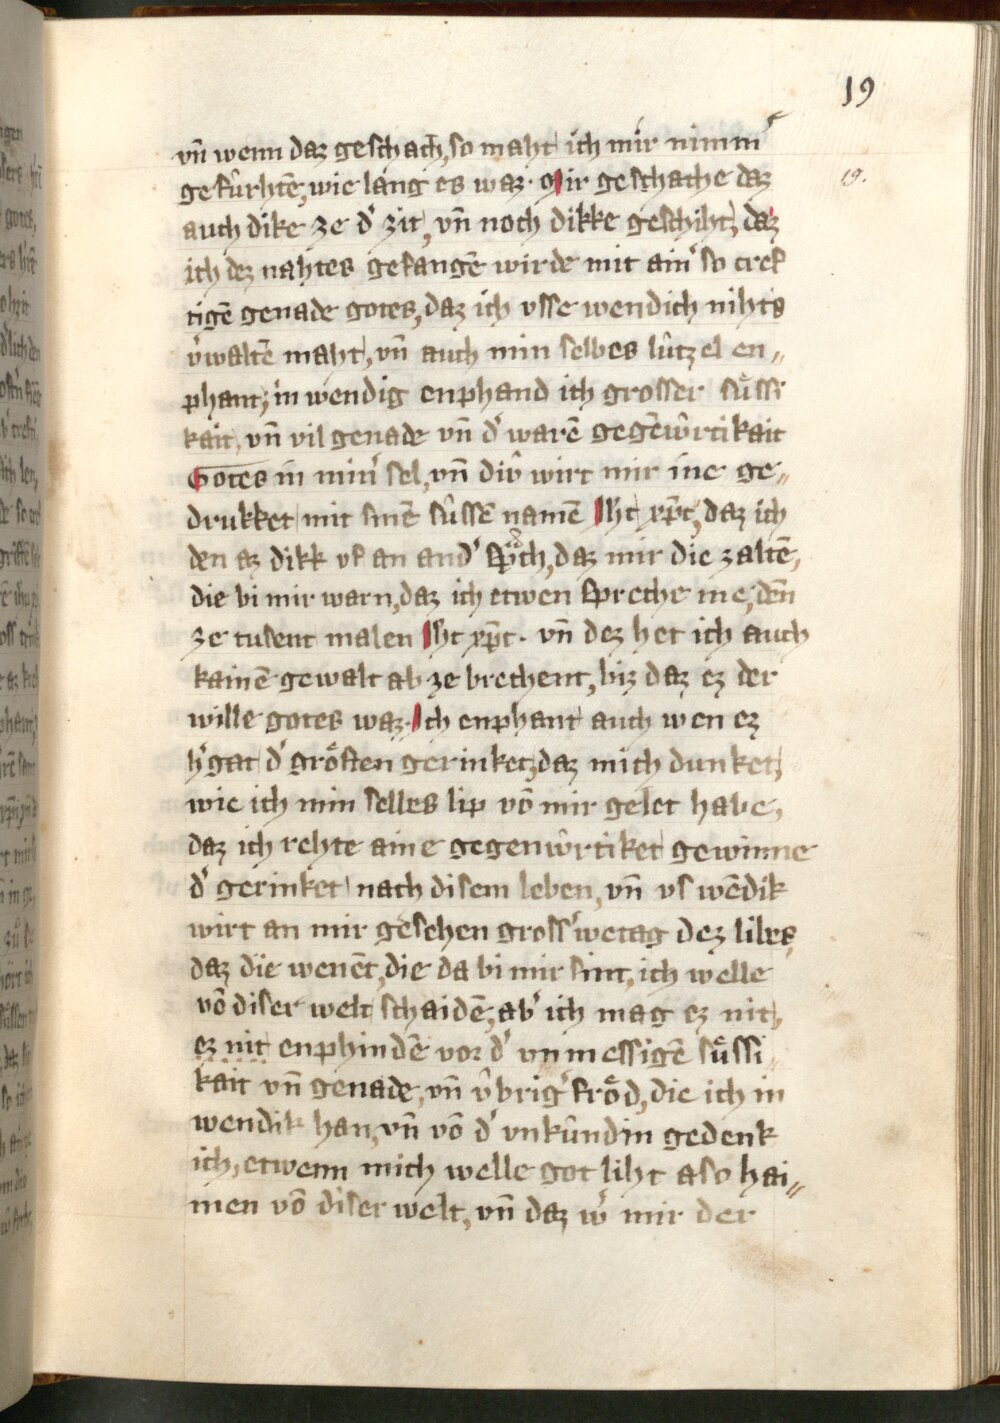 19
vn̄ wenn daz geschach, so maht ich mir nimm̾
gefûrhtē, wie lang es waz. Mir geschache daz
19.
auch dike ze d̾ zit, vn̄ noch dikke geschiht, daz
ich dez nahtes gefangē wirde mit ain̾ so cref
tigē genade gotes, daz ich vsse wendich nihts
v̾waltē maht, vn̄ auch min selbes lûtzel en„
phant, in wendig enphand ich grosser sůssi
kait, vn̄ vil genade vn̄ d̾ warē gegēwûrtikait
Gotes in min̾ sel, vn̄ diŵ wirt mir ine ge„
drukket mit sinē sûssē namē Jht xp̄c, daz ich
den az dikk vf an and̾ sp̾ch, daz mir die zaltē,
die bi mir warn, daz ich etwen spreche me, dēn
ze tusent malen Jht xp̄c. vn̄ dez het ich auch
kainē gewalt ab ze brechent, biz daz ez der
wille gotes waz. Ich enphant auch wen ez
h̾gat d̾ grôsten gerinket, daz mich dunket,
wie ich min selles lip vō mir gelet habe,
daz ich rehte aine gegenwûrtiket gewinne
d̾ gerinket nach disem leben, vn̄ vs wēdik
wirt an mir gesehen gross̾ wetag dez libes,
daz die wenēt, die da bi mir sint, ich welle
vō diser welt schaidē, ab̾ ich mag ez nit,
ez nit enphindē vor d̾ vnmessigē sůssi
kait vn̄ genade, vn̄ v̂brig̾ frôd, die ich in
wendik han, vn̄ vō d̾ vnkûndin gedenk
ich, etwenn mich welle got liht aso hai„
men vō diser welt, vn̄ daz w̾ mir der